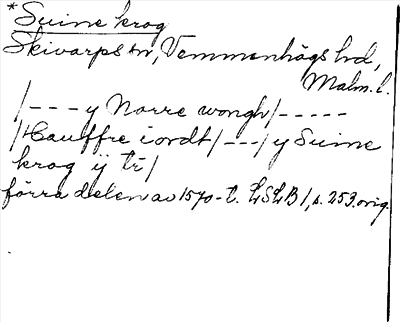 *Suine krog
Skivarps sn, Vemmenhögs hd,
Malm. l.
/--- y Norre wongh/-----
/Hauffre iordt/---/y Suine
krog ij tr/
förra delen av 1570-t. LSLB 1, s. 253. orig.